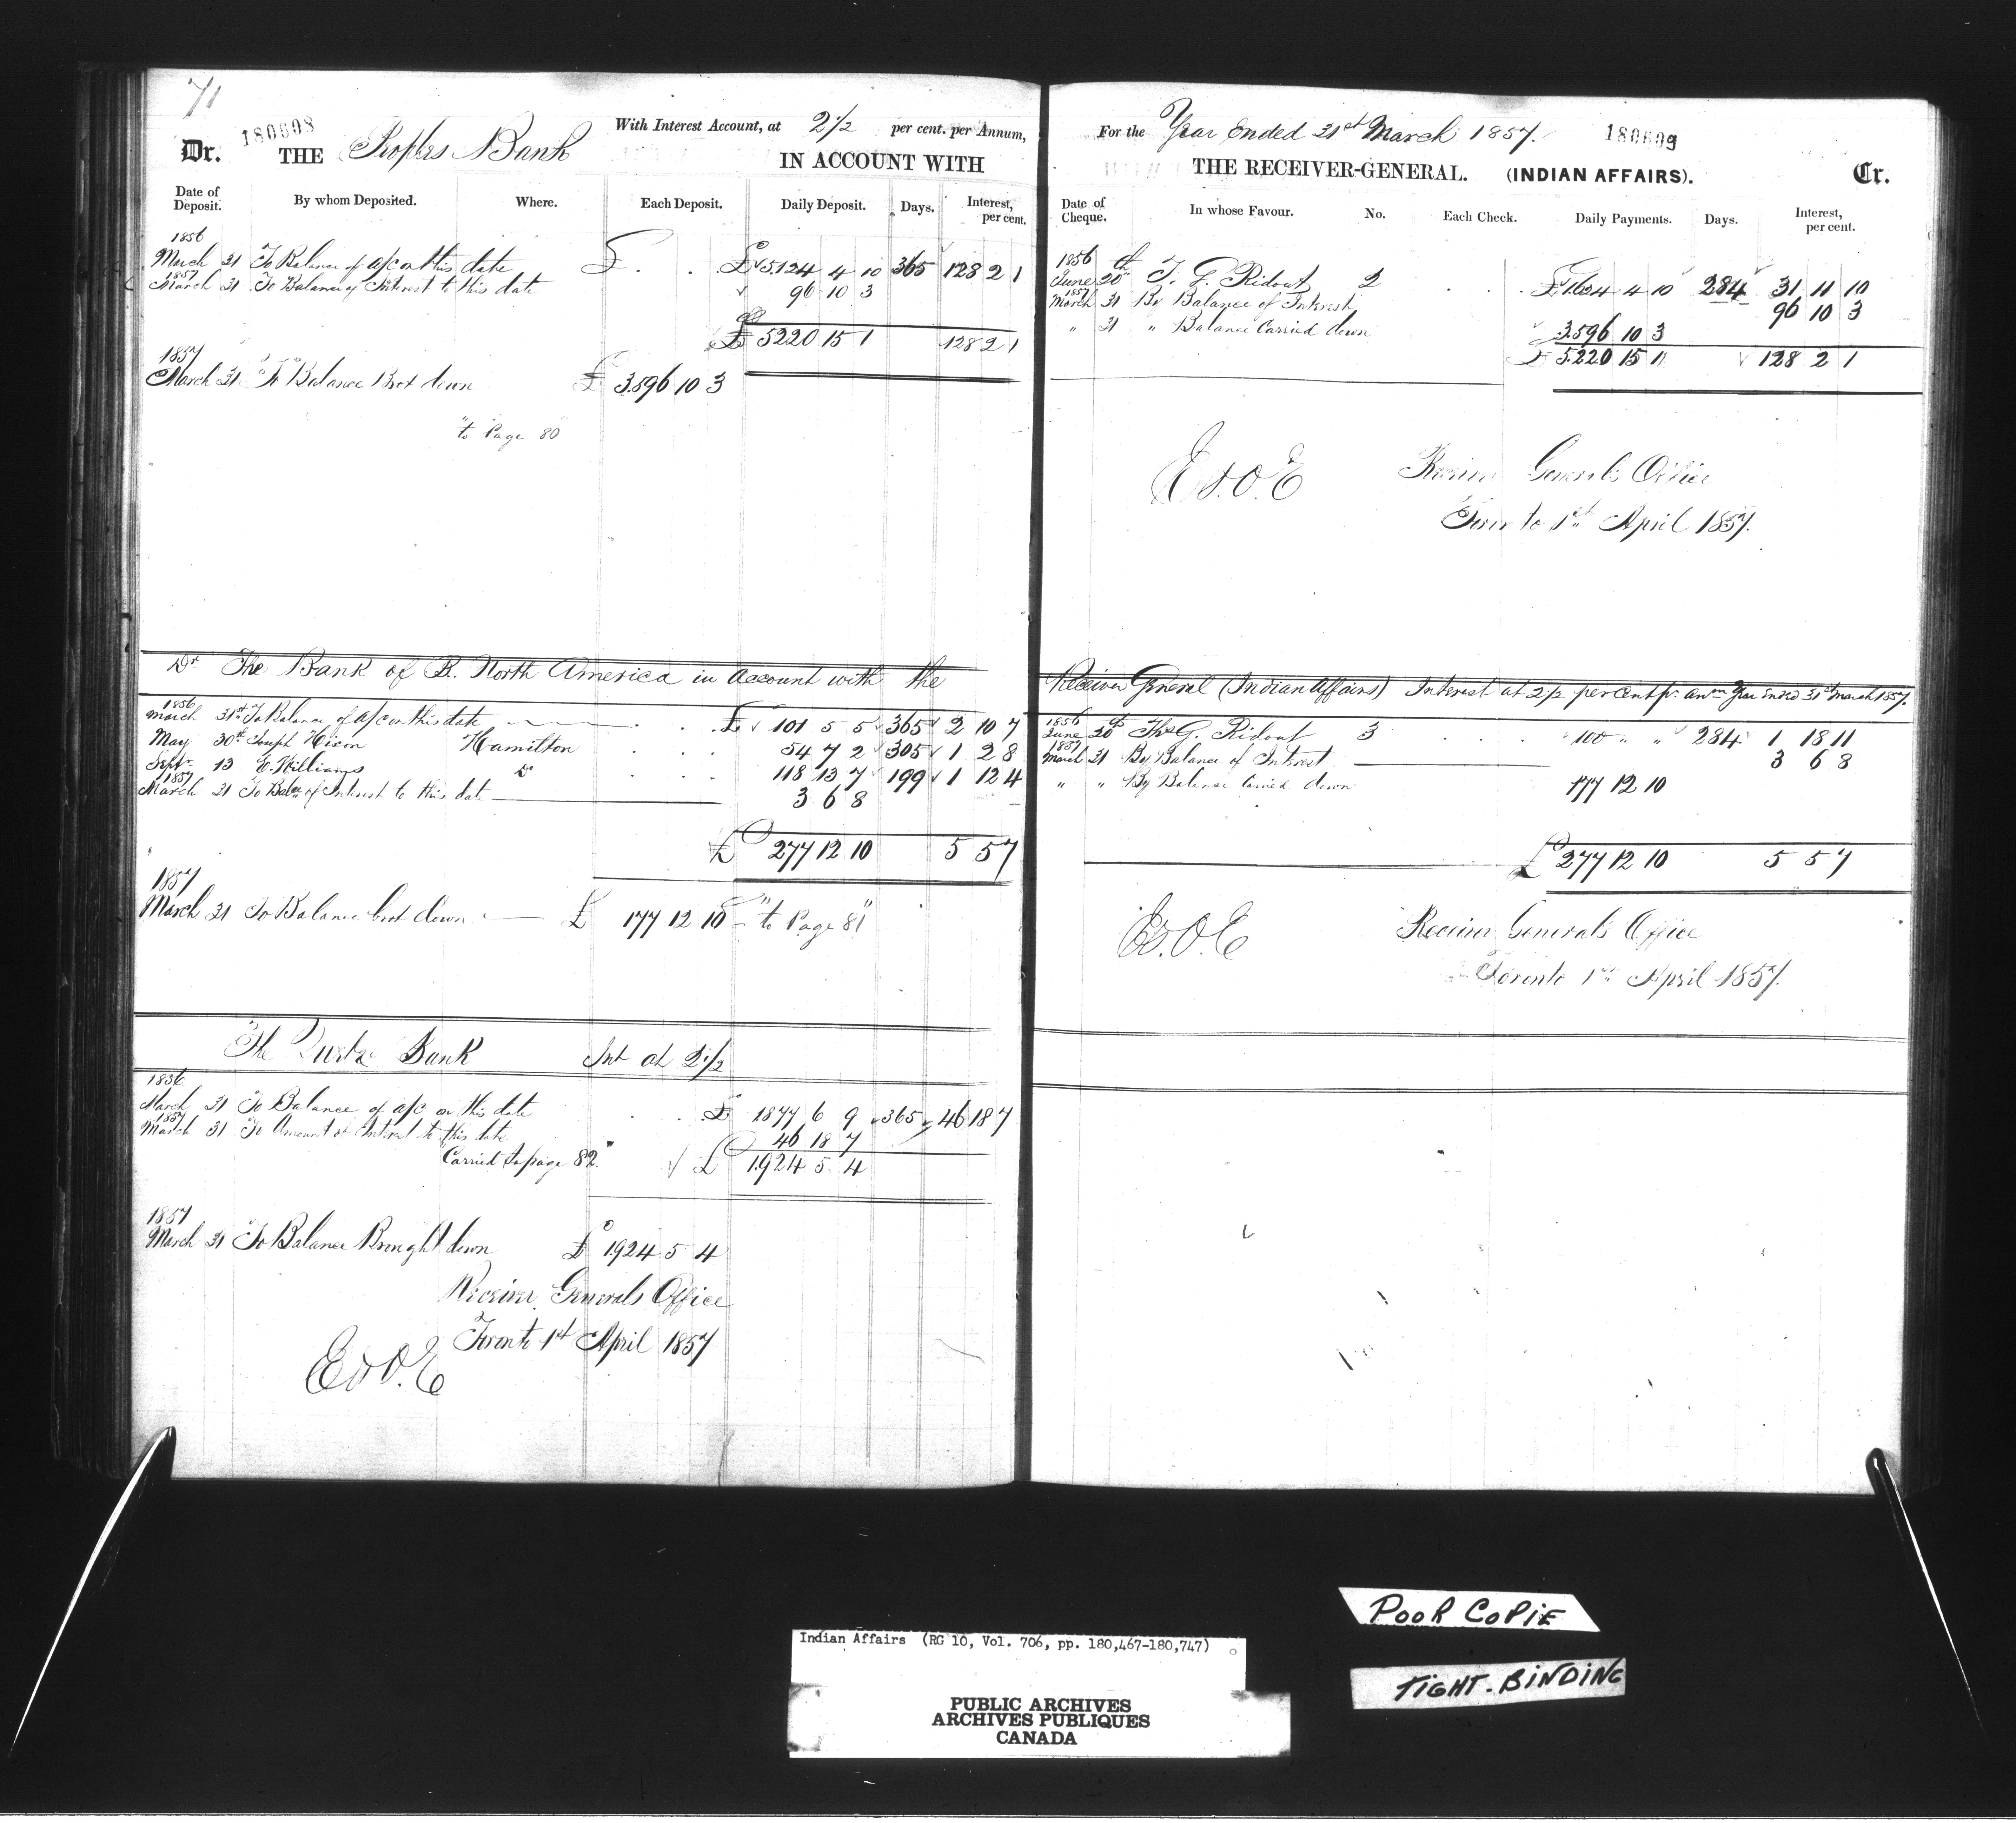 71
180608
Dr. THE Peoples Bank With Interest Account, at 2 1/2 per cent. per Annum,
IN ACCOUNT WITH
Date of Deposit. By whom Deposited. Where. Each Deposit. Daily Deposit. Days. Interest, per cent.
1856
March 31 To Balance of a/c on this date £ . . £ 5124 4 10 365 128 2 1
1857
March 31 To Balance of Interest to this date 96 10 3
£ 5220 15 1 128 2 1
1857
March 31 To Balance Brot down £ 3596 10 3
"to Page 80"
Dr The Bank of B. North America in account with the
1856
March 31st To Balance of a/c on this date . . £ 101 5 5 365 2 10 7
May 30th Joseph Hixon Hamilton . . . 54 7 2 305 1 2 8
Sept 13 E. Williams Do . . . 118 13 7 199 1 12 4
1857
March 31 To Balce of Interest to this date 3 6 8
£ 277 12 10 5 5 7
1857
March 31 To Balance brot down £ 177 12 10 "to Page 81"
The Bank Int at 2 1/2
1856
March 31 To Balance of a/c on this date . . £ 1877 6 9 365 46 18 7
1857
March 31 To Amount of Interest to this date 46 18 7
Carried to page 82" £ 1924 5 4
1857
March 31 To Balance Brought down £ 1924 5 4
Receiver Generals Office
Toronto 1st April 1857
E & O. E
For the Year Ended 31st March 1857. 180609
THE RECEIVER-GENERAL. (INDIAN AFFAIRS). Cr.
Date of Cheque. In whose Favour. No. Each Check. Daily Payments. Days. Interest, per cent.
1856
June 20th T. G. Ridout 2 . . . £ 1624 4 10 284 31 11 10
1857
March 31 By Balance of Interest 96 10 3
" 31 " Balance Carried down 3596 10 3
£ 5220 15 1 128 2 1
E & O. E
Receiver Generals Office
Toronto 1st April 1857.
Receiver General (Indian Affairs) Interest at 2 1/2 per cent pr. anm Year ended 31st March 1857.
1856
June 20th Thos G. Ridout 3 . . . 100 " " 284 1 18 11
1857
March 31 By Balance of Interest 3 6 8
" " By Balance Carried down 177 12 10
£ 277 12 10 5 5 7
E & O. E
Receiver Generals Office
Toronto 1st April 1857.
POOR COPIE
TIGHT-BINDING
Indian Affairs (RG 10, Vol. 706, pp. 180,467-180,747)
PUBLIC ARCHIVES
ARCHIVES PUBLIQUES
CANADA